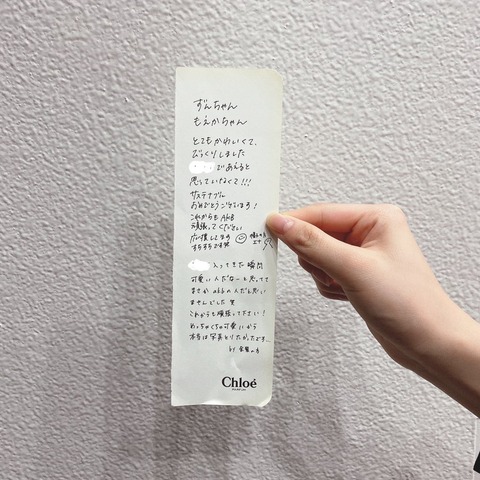 ずんちゃん
もえかちゃん
とてもかわいくて、
びっくりしました
であえると
思っていなくて!!!
サステナブル
おめでとうございます!
これからもAKB
頑張ってください
応援してます
すきすきです
入ってきた瞬間
可愛い人だなーと思ってて
まさかakbの人だと思い
ませんでした 笑
これからも頑張って下さい!
めっちゃくちゃ可愛いから
本当は写真とりたかったです…
by
Chloé